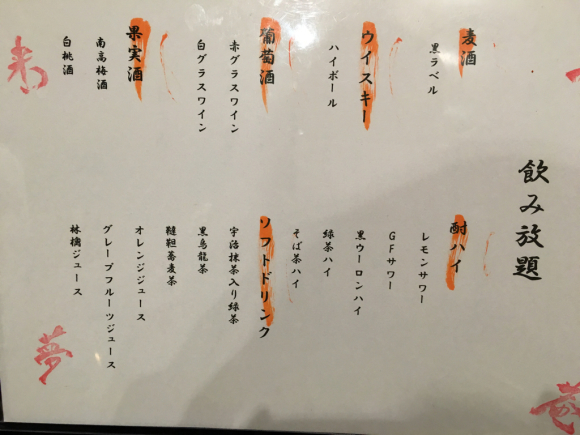 飲み放題
麦酒
黒ラベル
ウイスキー
ハイボール
葡萄酒
赤グラスワイン
白グラスワイン
果実酒
南高梅酒
白桃酒
酎ハイ
レモンサワー
GFサワー
黒ウーロンハイ
緑茶ハイ
そば茶ハイ
ソフトドリンク
宇治抹茶入り緑茶
黒烏龍茶
韃靼蕎麦茶
オレンジジュース
グレープフルーツジュース
林檎ジュース
夢